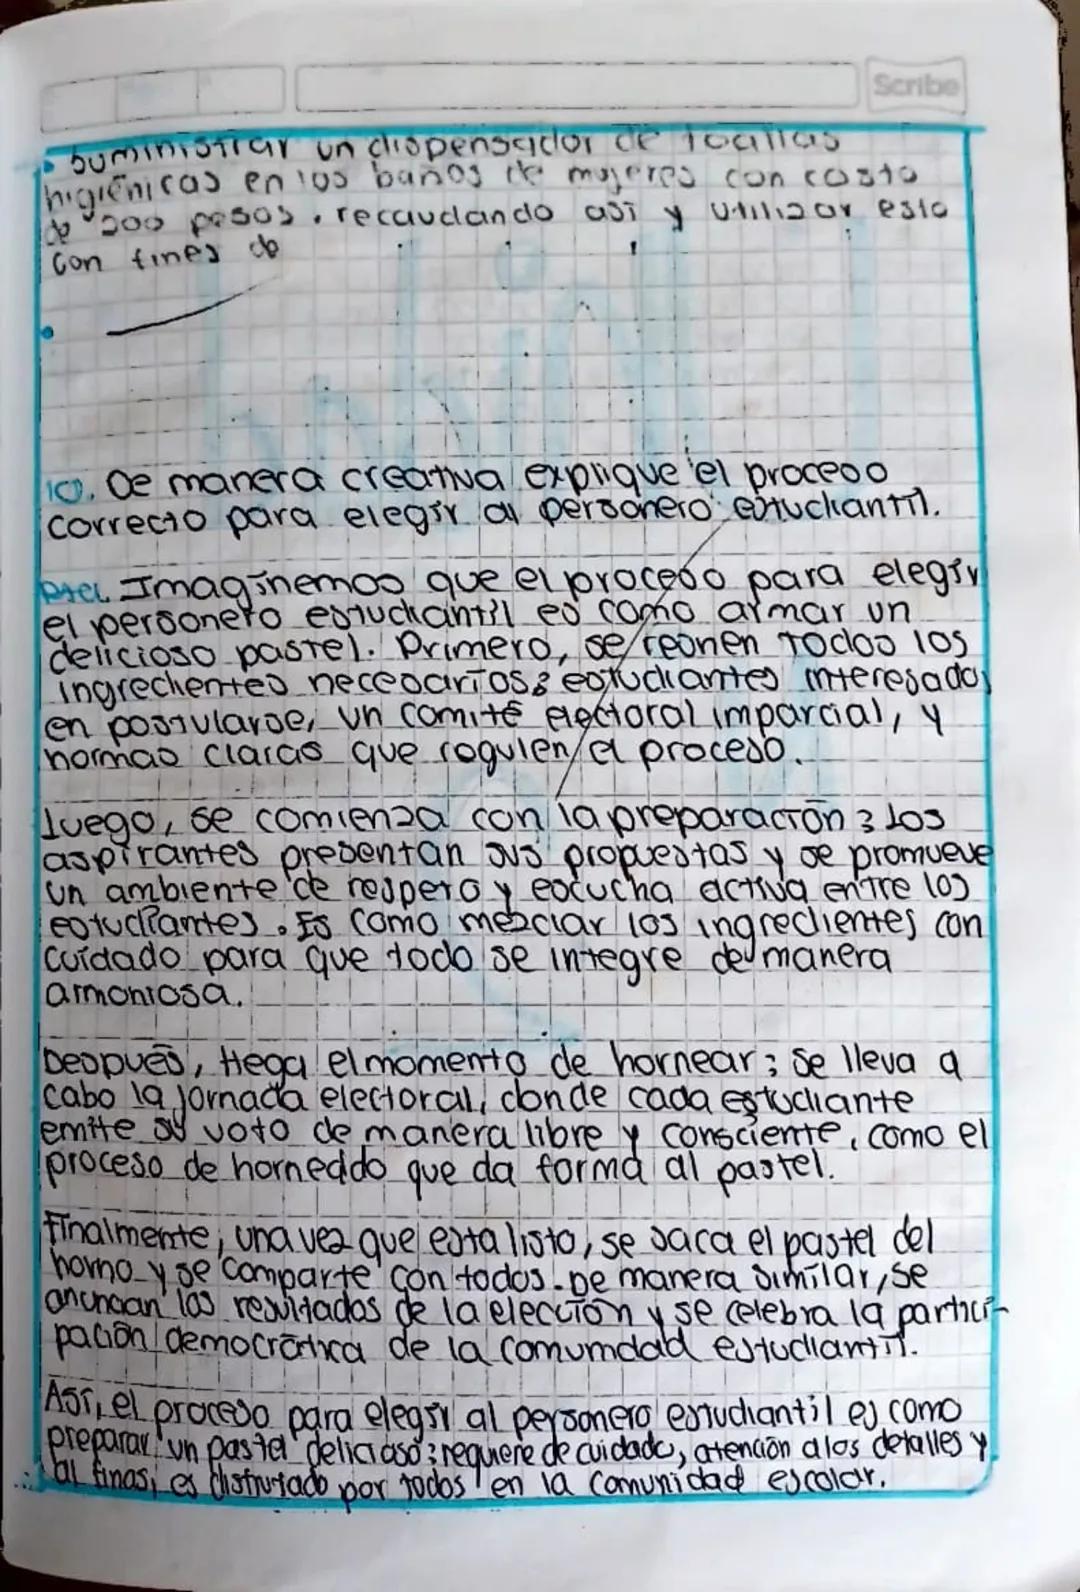 Scribe
• Suministrar un dispensador de toallas
higiénicas en los baños de mujeres con costo
de 200 pesos. recaudando asi y utilizar esto
con fines de
10. De manera creativa explique el proceso
correcto para elegir al personero estudiantil.
Rta. Imaginemos que el proceso para elegir
el personero estudiantil es como armar un
delicioso pastel. Primero, se reonen todos los
ingredientes necesarios: estudiantes interesados
en postularse, un comité electoral imparcial, y
normas claras que regulen el proceso.
Luego, se comienza con la preparación: Los
aspirantes presentan sus propuestas y se promueve
un ambiente de respeto y escucha activa entre los
estudiantes. Es como mezclar los ingredientes con
cuidado para que todo se integre de manera
armoniosa.
Después, llega el momento de hornear: Se lleva a
cabo la jornada electoral, donde cada estudiante
emite su voto de manera libre y consciente, como el
proceso de horneddo que da forma al pastel.
Finalmente, una vez que esta listo, se saca el pastel del
horno y se comparte con todos. De manera similar, se
anuncian los resultados de la elección y se celebra la partici-
pación democrática de la comunidad estudiantil.
Así, el proceso para elegir al personero estudiantil es como
preparar un pastel delicioso: requiere de cuidado, atención a los detalles y
al finas, es disfrutado por todos en la comunidad escolar.